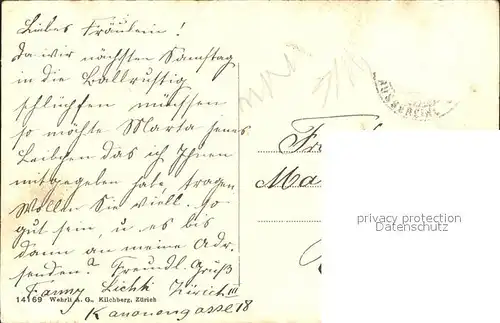 Liebes Fräulein!
Da wir nächsten Samstag
in die Ballrustig
schlüpfen müssen
so möchte Marta jenes
Leibchen das ich Ihnen
mitgegeben habe, tragen
Wollen Sie viell. so
gut sein, u. es bis
dann an meine Adr.
senden? Freundl. Gruß
Fanny Zürich III
14169 Wehrli A. G., Kilchberg, Zürich
Kanonengasse 18
Fr
Ma
privacy protection
Datenschutz